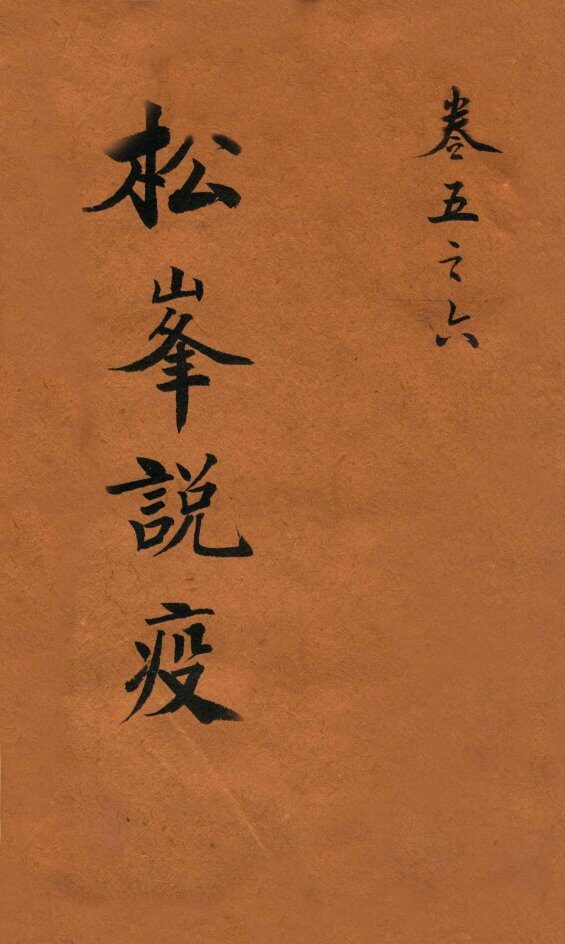 卷五之六
松峯說疫